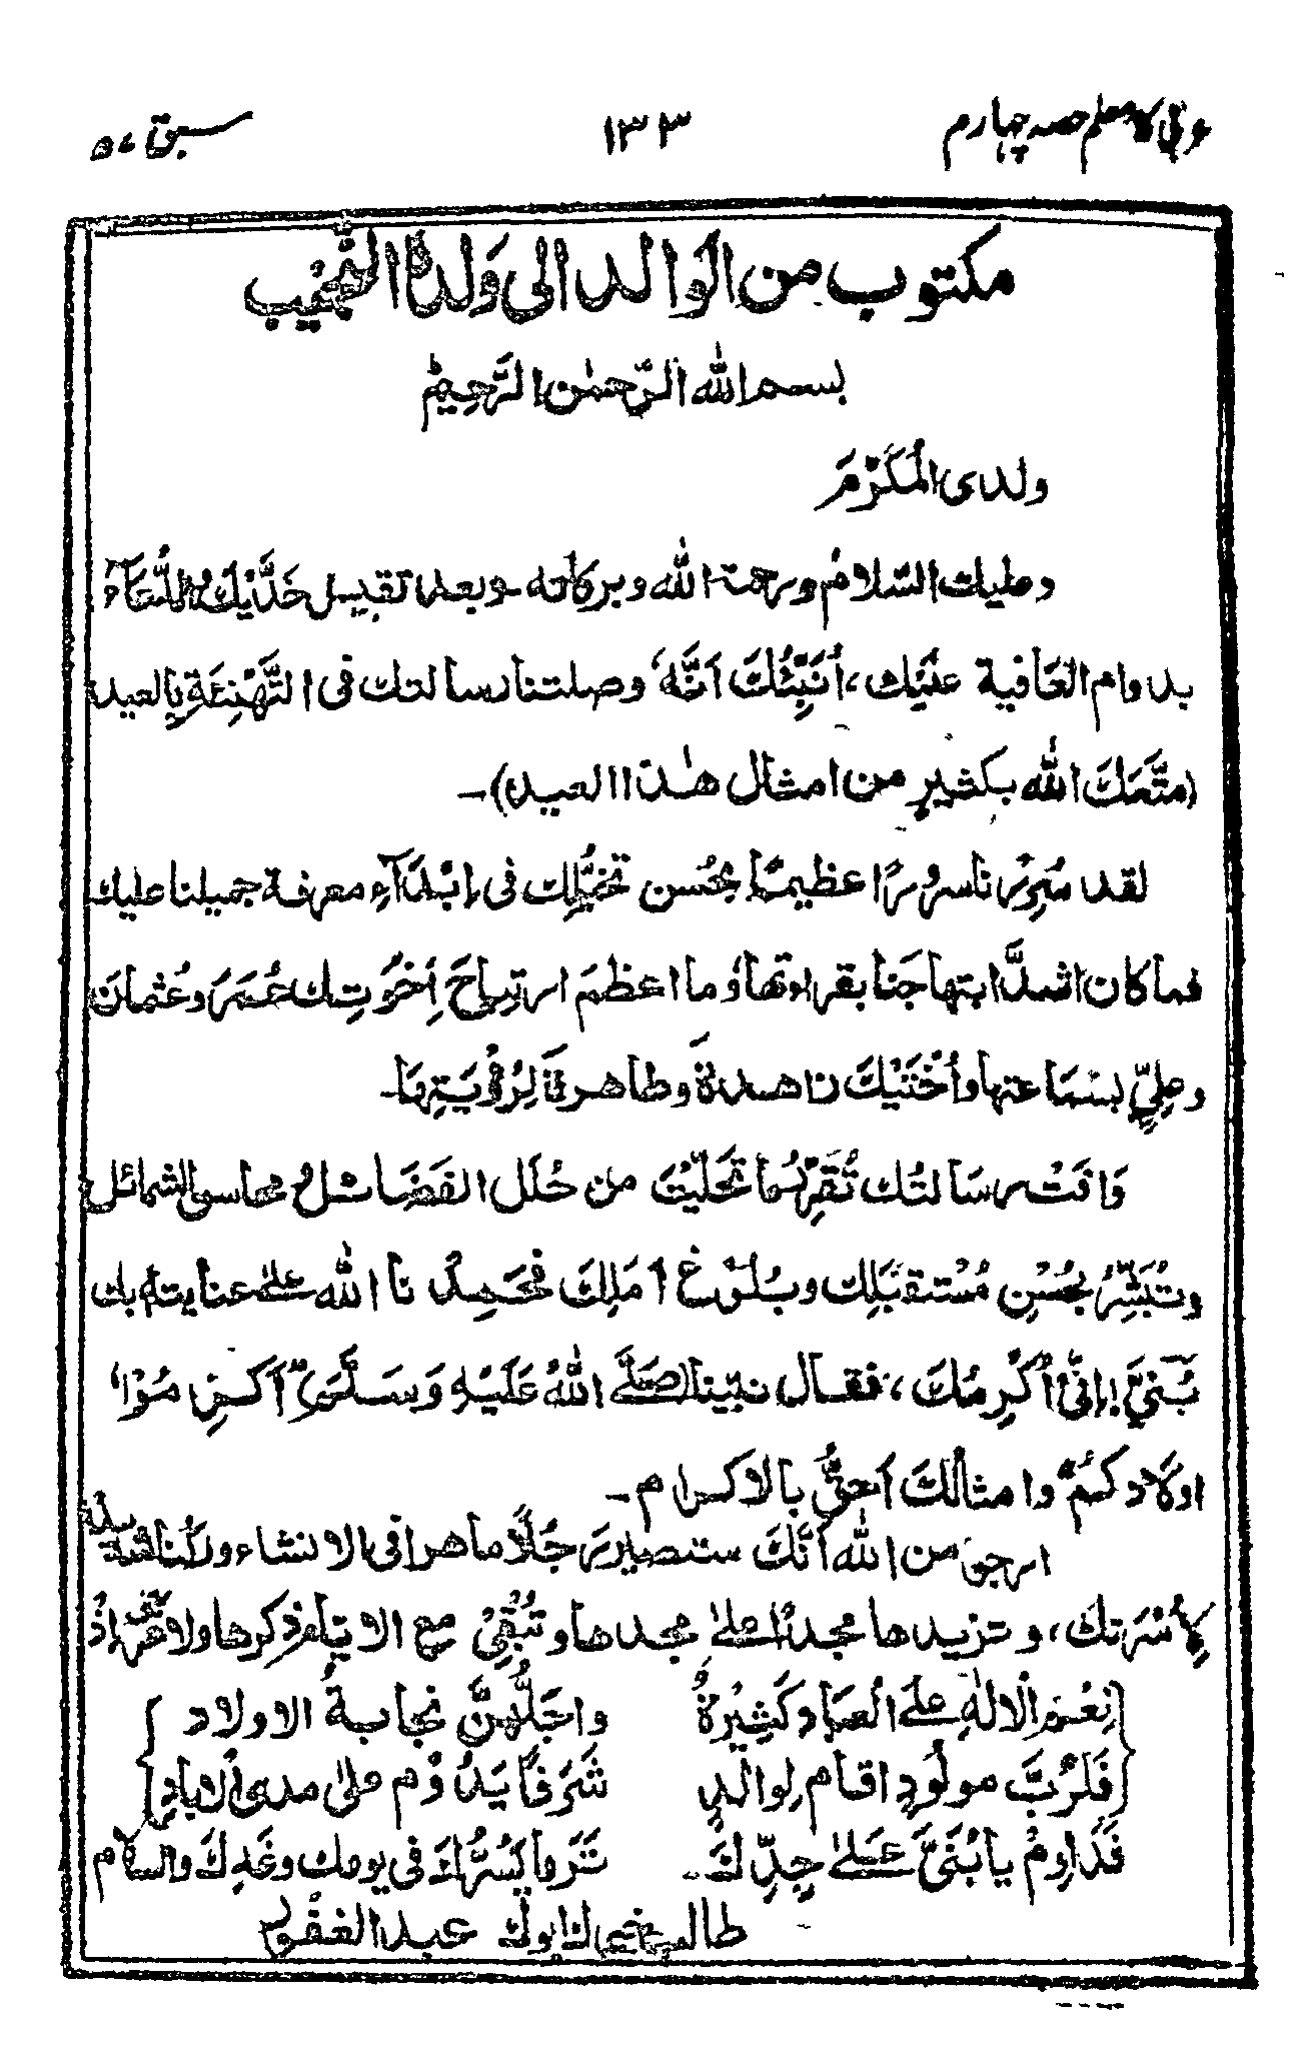 عربی کا معلم حصہ چہارم
۱۳۳
سبق ۵۷
مکتوب من الوالد الی وَلَدِهِ النَّجِیْبِ
بسم الله الرّحمٰن الرَّحِیْمِ
ولدی المُکَرَّمَ
وعلیك السّلامُ ورحمة الله وبرکاته ۔ وبعد تقبیل خَدَّیْكَ والدُّعَآءِ
بدوام العَافیة عَلَیْك، اُنَبِّئُكَ اَنَّهٗ وصلتنا رسالتك فی التَّهْنِئَةِ بِالعید
(متَّعَكَ الله بکثیرٍ من امثال هٰذا العید)۔
لقد سُرِرْنا سرورًا عظیمًا بحُسن تخَیُّلِك فی اِبْدَآءِ معرفة جمیلنا علیك
فما کان اشدَّ ابتهاجَنا بقراءتها وما اعظمَ ارتیاحَ اِخْوَتِك عُمَرَ وعُثمانَ
وعلِیٍّ بسَمَاعتها واُخْتَیْكَ ناهدةَ وطاهرةَ لِرُؤْیَتِهَا۔
وَافَتْ رسَالتُك تُقَرِّرُ ما تَحَلَّیْتَ من حُلَل الفَضَائل ومحاسن الشمائل
وتُبَشِّرُ بحُسْنِ مُسْتقبَلِك وبُلوغ اَمَلِكَ فحَمِدْنا الله علیٰ عنایته بك
بُنَیَّ! اِنّی اُکْرِمُكَ، فقال نبیّنا (صَلَّے اللهُ عَلَیْهِ وَسَلَّمَ) اَکرِمُوْا
اولادکُمْ وامثالُكَ اَحقُّ بالاکرام۔
ارجو من الله اَنَّكَ ستصیر رَجُلًا ماهرا فی الانشاء ورکنا
لِاُسْرَتك، وتزیدها مجدًا علیٰ مجدها وتُبْقِیْ مع الایام ذکرها ولا اِذْ
نِعَمُ الْالٰهِ عَلَے العباد کَثِیْرةٌ واجَلُّهُنَّ نجابةُ الاولاد
فَلَرُبَّ مولُودٍ اقام لِوالدٍ شَرَفًا یَدُوْم علیٰ مدی الاٰبادِ
فَدَاوِمْ یا بُنَیَّ عَلیٰ جِدِّكَ۔ تَرَ ما یَسُرُّكَ فی یومك وغَدِكَ والسلام
طالب خیرك ابوك عبد الغفور